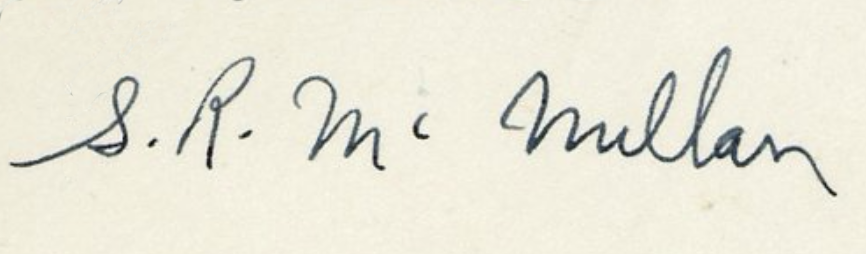 S. R. Mc Millan